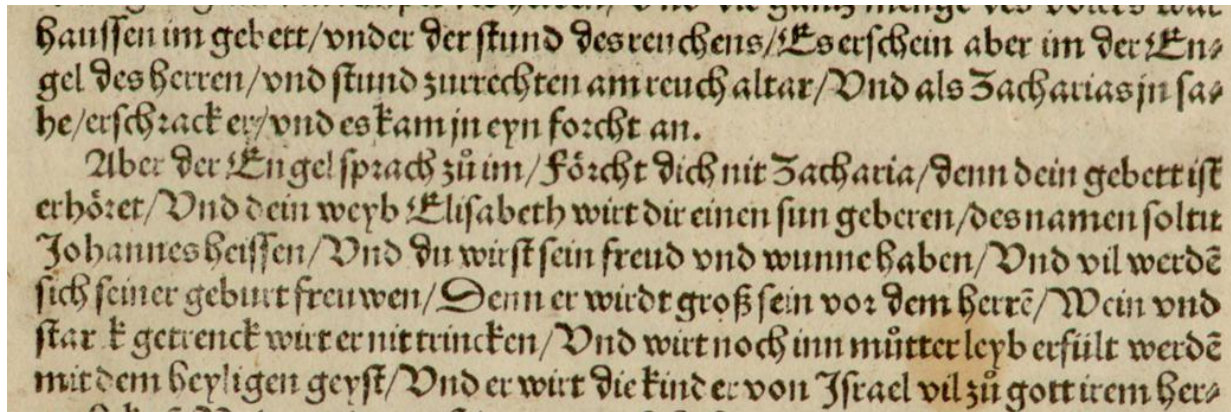 haussen im gebett/ vnder der stund des reuchens/ Es erschein aber im der En⸗
gel des herren/ vnd stund zur rechten am reuch altar/ Vnd als Zacharias jn sa⸗
he/ erschrack er/ vnd es kam jn eyn forcht an.
Aber der Engel sprach zů im/ Förcht dich nit Zacharia/ denn dein gebett ist
erhöret/ Vnd dein weyb Elisabeth wirt dir einen sun geberen/ des namen soltu
Johannes heissen/ Vnd du wirst sein freud vnd wunne haben/ Vnd vil werdē
sich seiner geburt freuwen/ Denn er wirdt groß sein vor dem herrē/ Wein vnd
starck getrenck wirt er nit trincken/ Vnd wirt noch inn můtter leyb erfült werdē
mit dem heyligen geyst/ Vnd er wirt die kinder von Israel vil zů gott irem her⸗